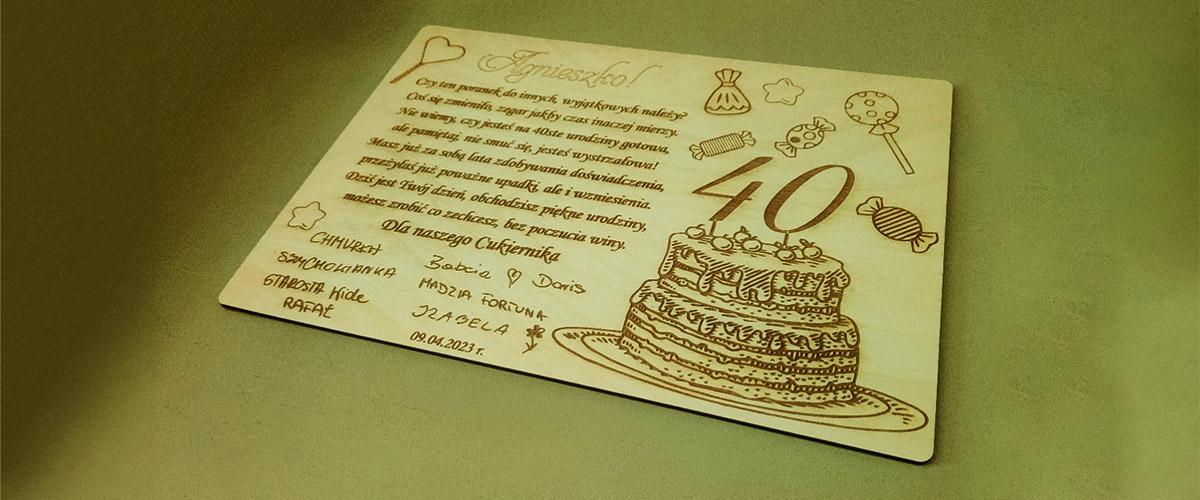 Agnieszko!
Czy ten poranek do innych, wyjątkowych należy?
Coś się zmieniło, zegar jakby czas inaczej mierzy.
Nie wiemy, czy jesteś na 40ste urodziny gotowa,
ale pamiętaj, nie smuć się, jesteś wystrzałowa!
Masz już za sobą lata zdobywania doświadczenia,
przeżyłaś już poważne upadki, ale i wzniesienia.
Dziś jest Twój dzień, obchodzisz piękne urodziny,
możesz zrobić co zechcesz, bez poczucia winy.
Dla naszego Cukiernika
CHMUREŃ
SZYCHOWIANKA
STAROSTA Kide
RAFAŁ
Babcia Doris
MADZIA FORTUNA
IZABELA
09.04.2023 r.
40